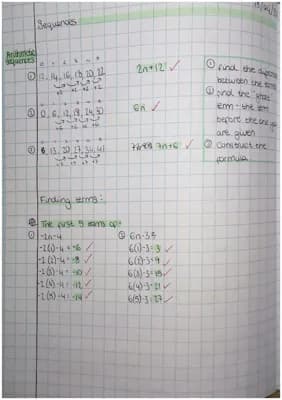 Sequences
Arithmetic
sequences
① 12, 14, 16, 18, 20, 22
+2 +2 +2 +2
2n+12 ✓
② 0, 6, 12, 18, 24,
+6 +6 +6 +6
6n ✓
③ 6, 13, 20, 27, 34, 41
+7 +7 +7 +7
7n+6 ✓
① Find the
between the terms
② Find the
term - the term
before the one you
are given
③ Construct the
formula
Finding terms:
The first 5 terms of:
① -2n-4
-2(1)-4=-6 ✓
-2(2)-4=-8 ✓
-2(3)-4=-10 ✓
-2(4)-4=-12 ✓
-2(5)-4=-14 ✓
② 6n-3
6(1)-3=3 ✓
6(2)-3=9 ✓
6(3)-3=15 ✓
6(4)-3=21 ✓
6(5)-3=27 ✓